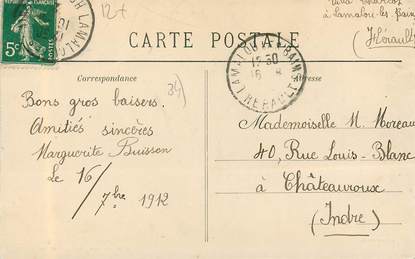 Villa Charcot
à Lamalou-les-Bains
(Hérault)
12+
CARTE POSTALE
5c
LAMALOU
LAMALOU-LES-BAINS
12 30
16
HÉRAULT
Correspondance
Adresse
34
Bons gros baisers.
Amitiés sincères
Marguerite Buisson
Le 16/
7bre 1912
Mademoiselle M. Moreau
40, Rue Louis-Blanc
à Châteauroux
(Indre)